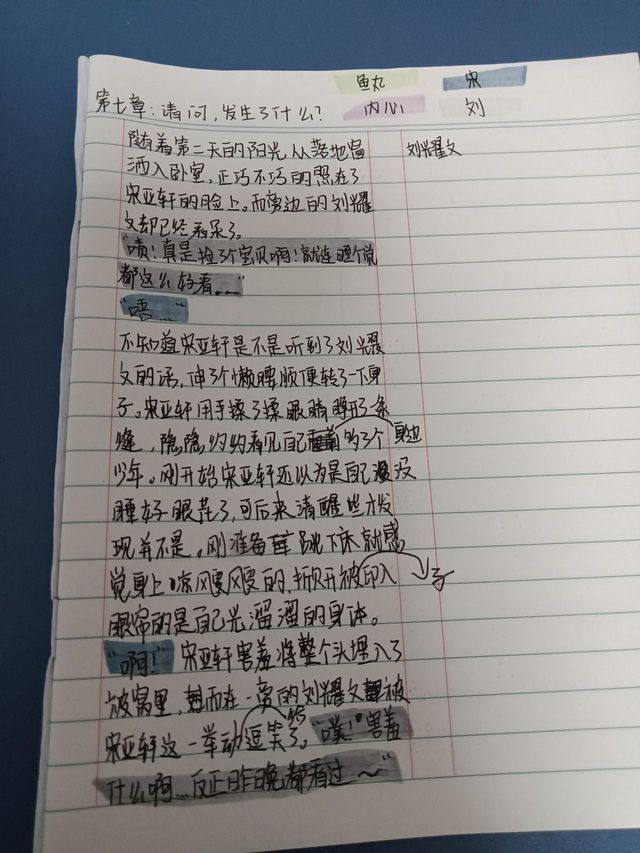 鱼丸 宋
第七章：请问，发生了什么？ 内心 刘
随着第二天的阳光从落地窗 刘耀文
洒入卧室，正巧不巧的照在了
宋亚轩的脸上。而旁边的刘耀
文却已经看呆了。
"啧！真是捡了个宝贝啊！就连睡个觉
都这么好看……"
"唔……"
不知道宋亚轩是不是听到了刘耀
文的话，伸了个懒腰顺便转了一下身
子。宋亚轩用手揉了揉眼睛睁开了条
缝，隐隐约约看见自己身边多了个
少年。刚开始宋亚轩还以为是自己没
睡好眼花了，可后来清醒些才发
现并不是。刚准备跳下床就感
觉身上凉飕飕的，掀开被子印入
眼帘的是自己光溜溜的身体。
"啊！"宋亚轩害羞将整个头埋入了
被窝里，而在一旁的刘耀文被
宋亚轩这一举动逗笑了。"噗！害羞
什么啊…反正昨晚都看过～"